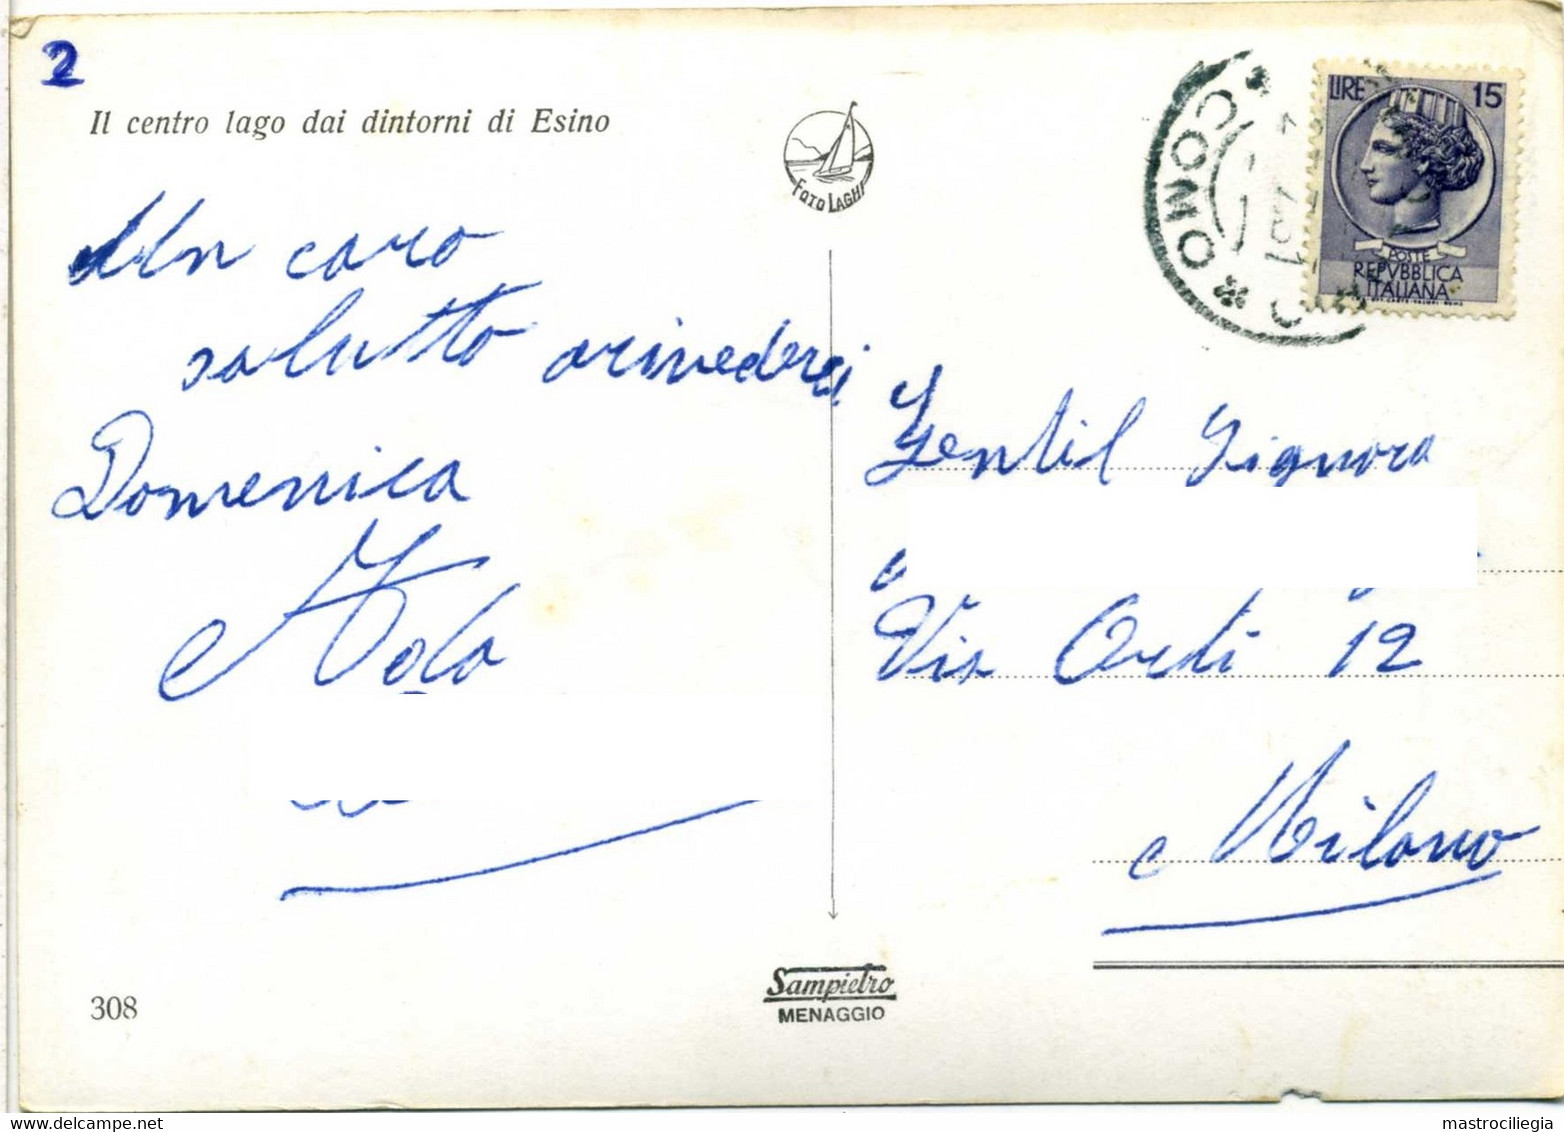 2
Il centro lago dai dintorni di Esino
FOTO LAGHI
COMO
LIRE 15
POSTE
REPVBBLICA
ITALIANA
Un caro
salutto arivederci
Domenica
Gentil Signora
Via Ordi 12
Milano
308
Sampietro
MENAGGIO
mastrociliegia